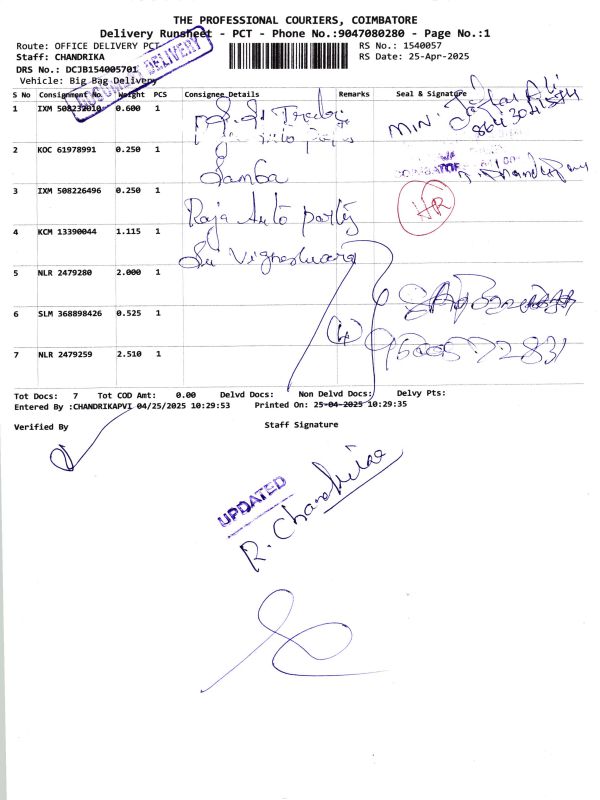 THE PROFESSIONAL COURIERS, COIMBATORE
Delivery Runsheet - PCT - Phone No.:9047080280 - Page No.:1
Route: OFFICE DELIVERY PCT
RS No.: 1540057
Staff: CHANDRIKA
RS Date: 25-Apr-2025
DRS No.: DCJB154005701
Vehicle: Big Bag Delivery
DOCUMENT DELIVERY
S No Consignment No. Weight PCS Consignee Details Remarks Seal & Signature
1 IXM 508232010 0.600 1
2 KOC 61978991 0.250 1 Samba
3 IXM 508226496 0.250 1 Raja Auto parts HR
4 KCM 13390044 1.115 1 Sri Vigneshwara
5 NLR 2479280 2.000 1
6 SLM 368898426 0.525 1 (4)
7 NLR 2479259 2.510 1
Tot Docs: 7 Tot COD Amt: 0.00 Delvd Docs: Non Delvd Docs: Delvy Pts:
Entered By :CHANDRIKAPVI 04/25/2025 10:29:53 Printed On: 25-04-2025 10:29:35
Verified By Staff Signature
UPDATED
R. Chandrikaa